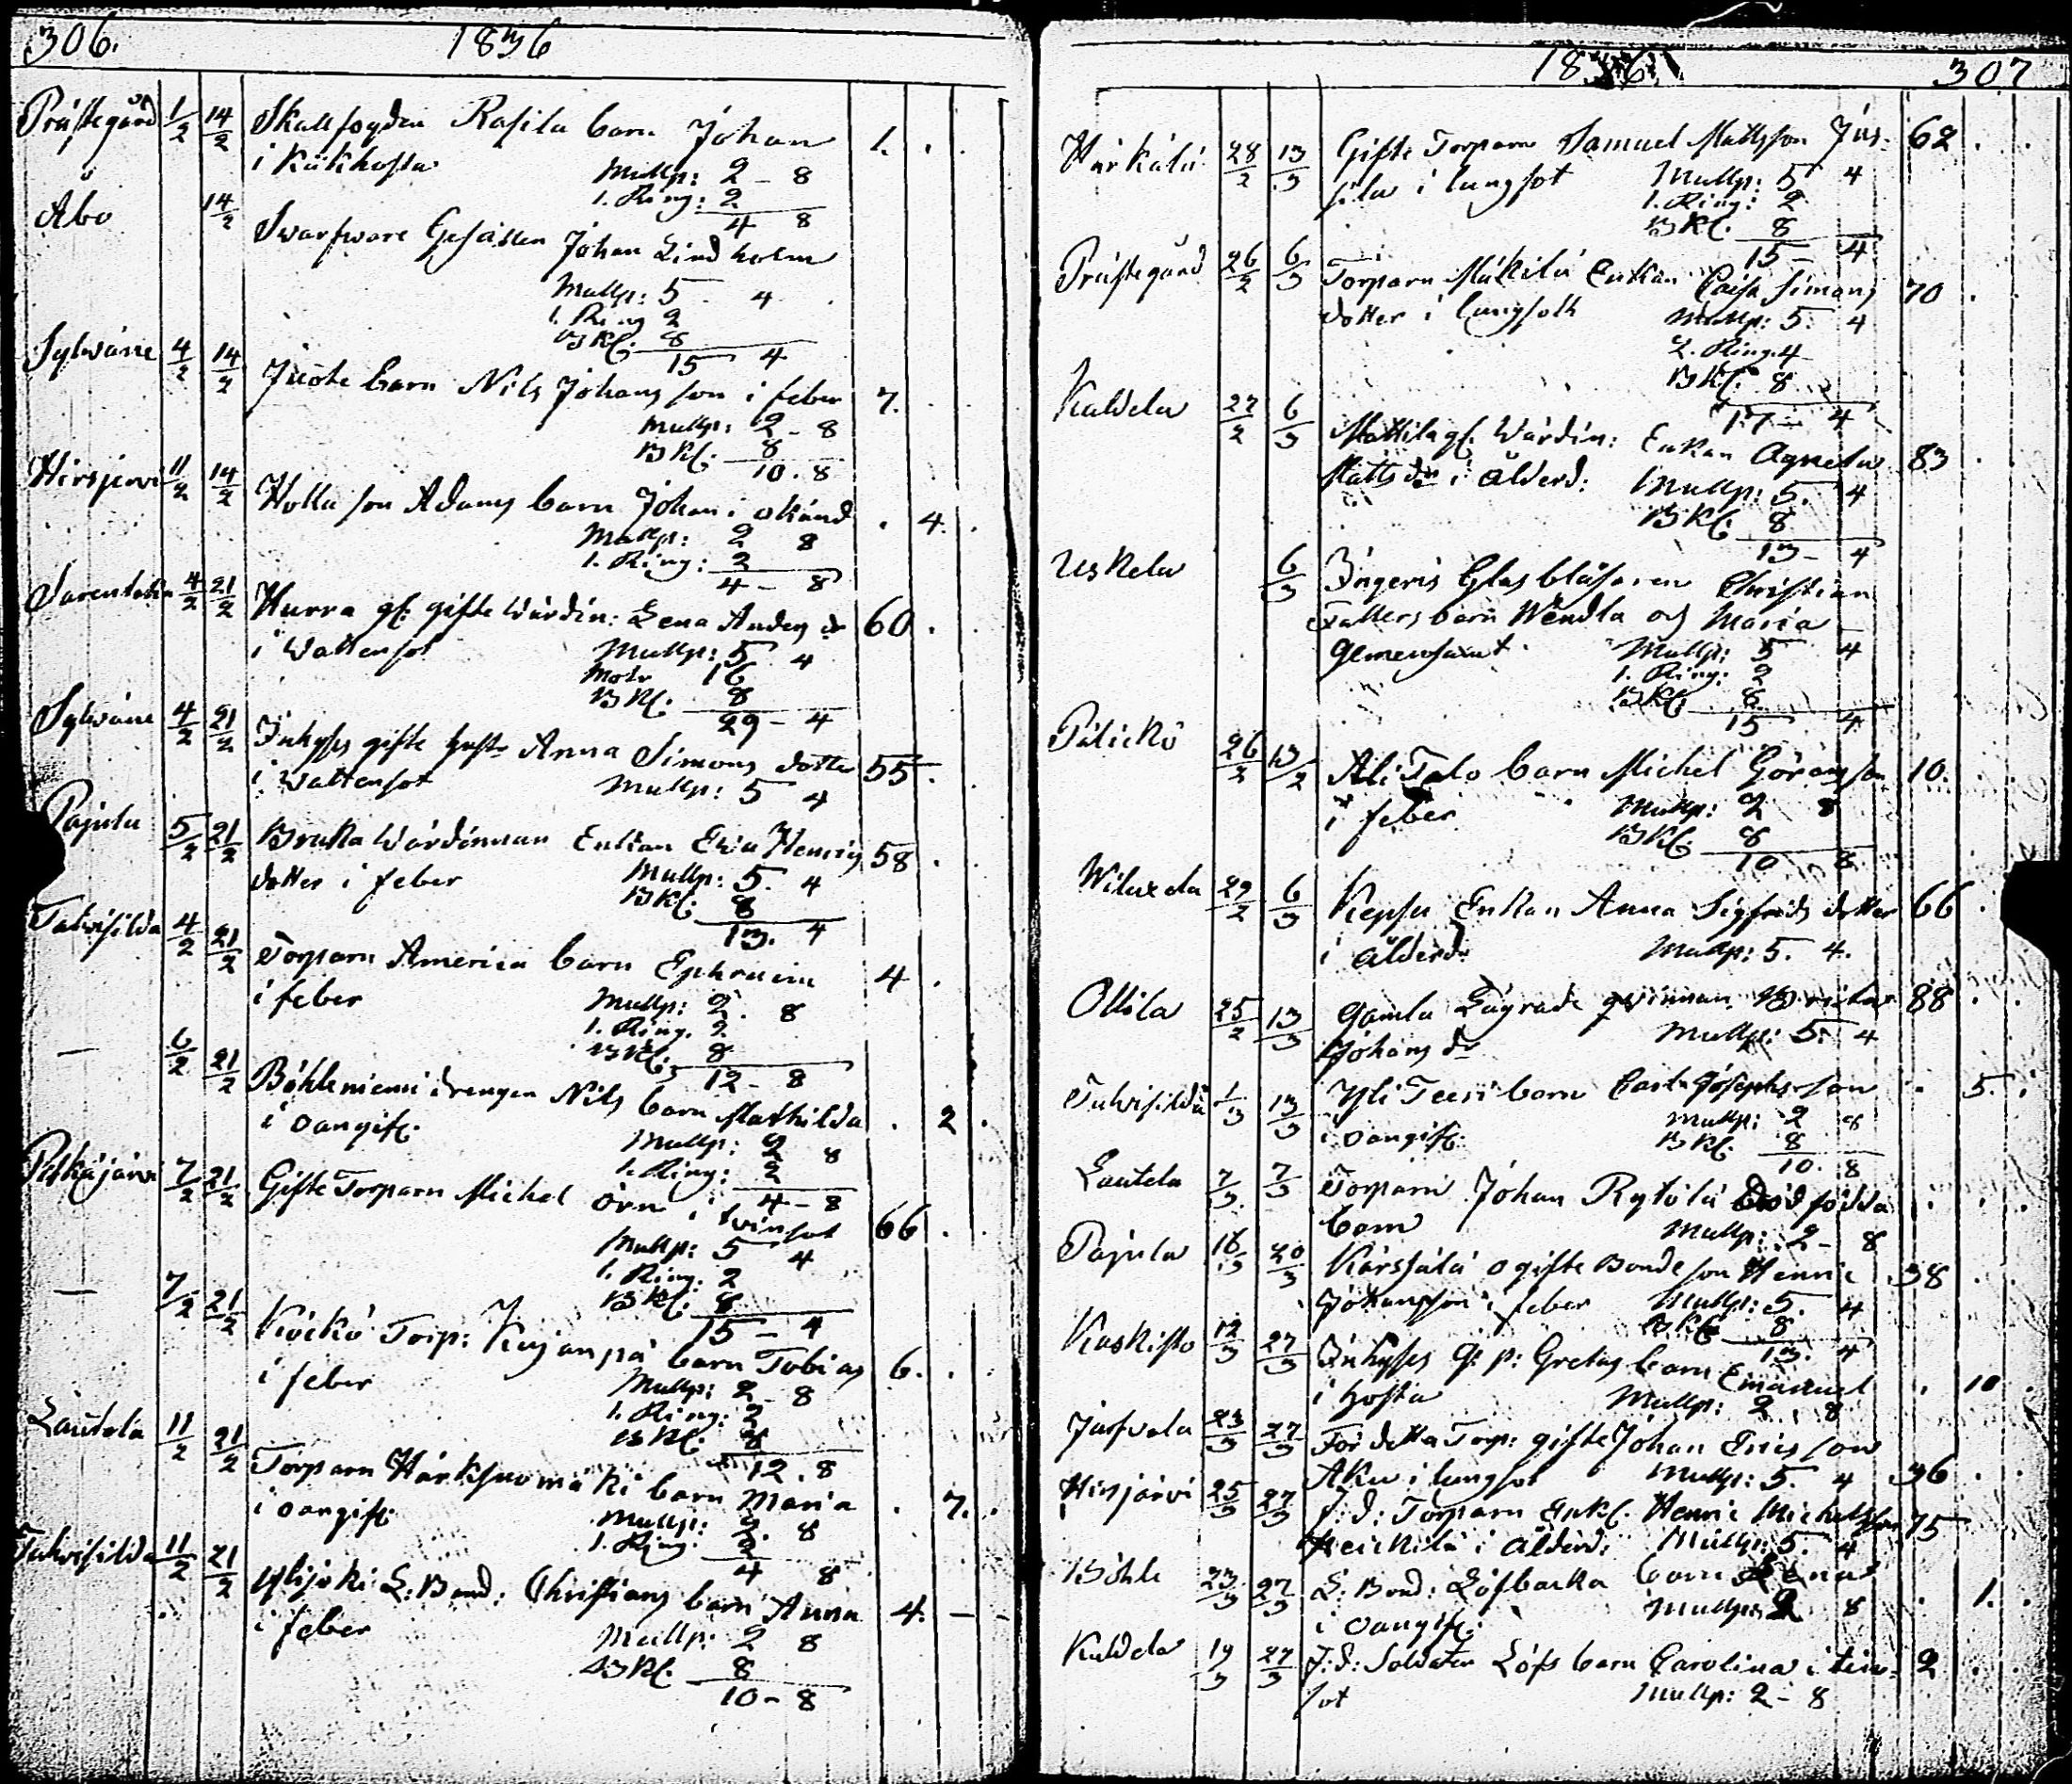 306. 1836
Prästegård 1/2 14/2 Skallfogden Rasila barn Johan 1. . .
i Kikhosta Mullp: 2 - 8
1. Ring: 2
4 8
Åbo 14/2 Svarfvare Gesällen Johan Lindholm
Mullp: 5 4
1. Ring 2
B Kl. 8
15 4
Sylwäne 4/2 14/2 Juote barn Nils Johansson i feber 7.
Mullp: 2 - 8
B Kl. 8
10. 8
Hirsjervi 11/2 14/2 Holla son Adams barn Johan i okänd . 4.
Mullp: 2 8
1. Ring: 2
4 - 8
4/2 21/2 Hurra gl: gifte Wärdin: Lena Anders dr 60 .
i Wattensot Mullp: 5 4
16
B Kl. 8
29 - 4
Sylwäne 4/2 21/2 Inhyses gifte Anna Simons dotter 55 .
i Wattensot Mullp: 5 4
Pajula 5/2 21/2 Bruka Wärdinnan Enkan Eva Henrics 58 .
dotter i feber Mullp: 5. 4
B Kl. 8
13. 4
Talvisilda 4/2 21/2 Torparn America barn Ephraim 4 .
i feber Mullp: 2. 8
1. Ring. 2
B Kl. 8
12 - 8
— 6/2 21/2 Böhleniemi drengen Nils barn Mathilda . 2 .
i oangif: Mullp: 2 8
1. Ring: 2
4 - 8
Pitkäjärvi 7/2 21/2 Gifte Torparn Michel Örn i tvinsot 66 .
Mullp: 5 4
1. Ring. 2
B Kl. 8
15 - 4
— 7/2 21/2 Köckö Torp: Kujanpä barn Tobias 6. .
i feber Mullp: 2 - 8
1. Ring: 2
B Kl. 8
12. 8
Lautela 11/2 21/2 Torparn Härksuomäki barn Maria . 7. .
i oangif: Mullp: 2. 8
1. Ring. 2
4 8
Talvisilda 11/2 21/2 Ylijoki L: Bond: Christians barn Anna 4. - -
i feber Mullp: 2 8
B Kl. 8
10 - 8
1836 307
Härkälä 28/2 13/3 Gifte Torparn Samuel Mattsson Jus- 62 .
sila i lungsot Mullp: 5 4
1. Ring: 2
B Kl. 8
15 - 4
Prästegård 26/2 6/3 Torparn Mäkilä Enkan Caisa Simons 70 .
dotter i lungsoth Mullp: 5. 4
2. Ring. 4
B Kl. 8
17 - 4
Kaldela 27/2 6/3 Mattila gl. Wärdin: Enkan Agneta 83 .
Matts dr i ålderd: Mullp: 5. 4
B Kl. 8
13 - 4
Uskela 6/3 Ingeris Glasblåsaren Christian
Fallers barn Wendla och Maria
gemensamt Mullp: 5 4
1. Ring: 2
B Kl. 8
15 4
Pälickö 26/2 13/2 Ali Talo barn Michel Göransson 10.
i feber Mullp: 2 8
B Kl. 8
10 8
Wiluxela 29/2 6/3 Kepsu Enkan Anna Sigfrids dotter 66 .
i ålderd: Mullp: 5. 4.
Ollila 25/2 13/3 Gamla Lägrade qvinnan 88 .
Johans dr Mullp: 5. 4
Talvisilda 1/3 13/3 Yli Teeri barn Carl Josephsson . 5. .
i oangif: Mullp: 2 8
B Kl. 8
10. 8
Lautela 7/3 7/3 Torparn Johan Rytölä dödfödda . . .
barn Mullp: 2 - 8
Pajula 16/3 20/3 Kärssälä ogifte Bonde son Henric 38 . .
Johansson i feber Mullp: 5. 4
B Kl. 8
13. 4
Koskisto 12/3 27/3 Inhyses Q: p: Gretas barn Emanuel . 10 .
i hosta Mullp: 2. 8
23/3 27/3 För detta Torp: gifte Johan Ericsson 36 . .
Aku i lungsot Mullp: 5. 4
Hirsjärvi 25/3 27/3 f: d: Torparn Enkl. Henric Michelsson 75
Heickilä i ålderd: Mullp: 5. 4
Böhle 23/3 27/3 L: Bond: Löfbacka barn . 1. .
i oangif: Mullp: 2 8
Kaldela 19/3 27/3 f: d: Soldaten Löfs barn Carolina i tvin- 2 . .
sot Mullp: 2 - 8